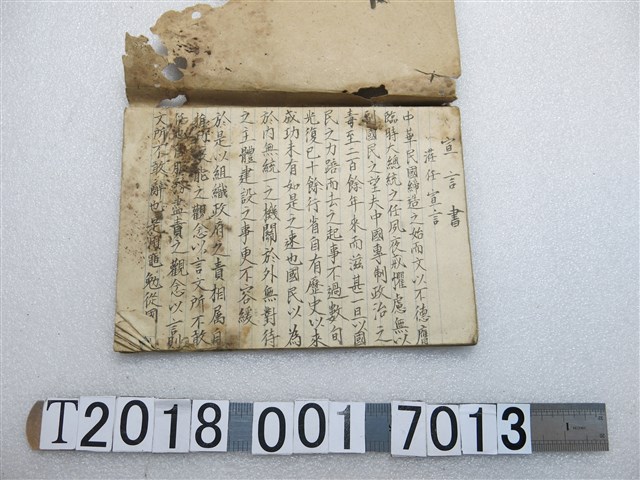 宣言書
蒞任宣言
中華民國締造之始而文以不德膺
臨時大總統之任夙夜祗懼慮無以
副國民之望夫中國專制政治之
毒至二百餘年來而滋甚一旦以國
民之力踣而去之起事不過數旬
光復已十餘行省自有歷史以來
成功未有如是之速也國民以為
於內無統一之機關於外無對待
之主體建設之事更不容緩
於是以組織政府之責相屬自
推功讓能之觀念以言文所不敢
任也自服務盡責之觀念以言則
文所不敢辭也是用黽勉從國
T2018 001 7013
1